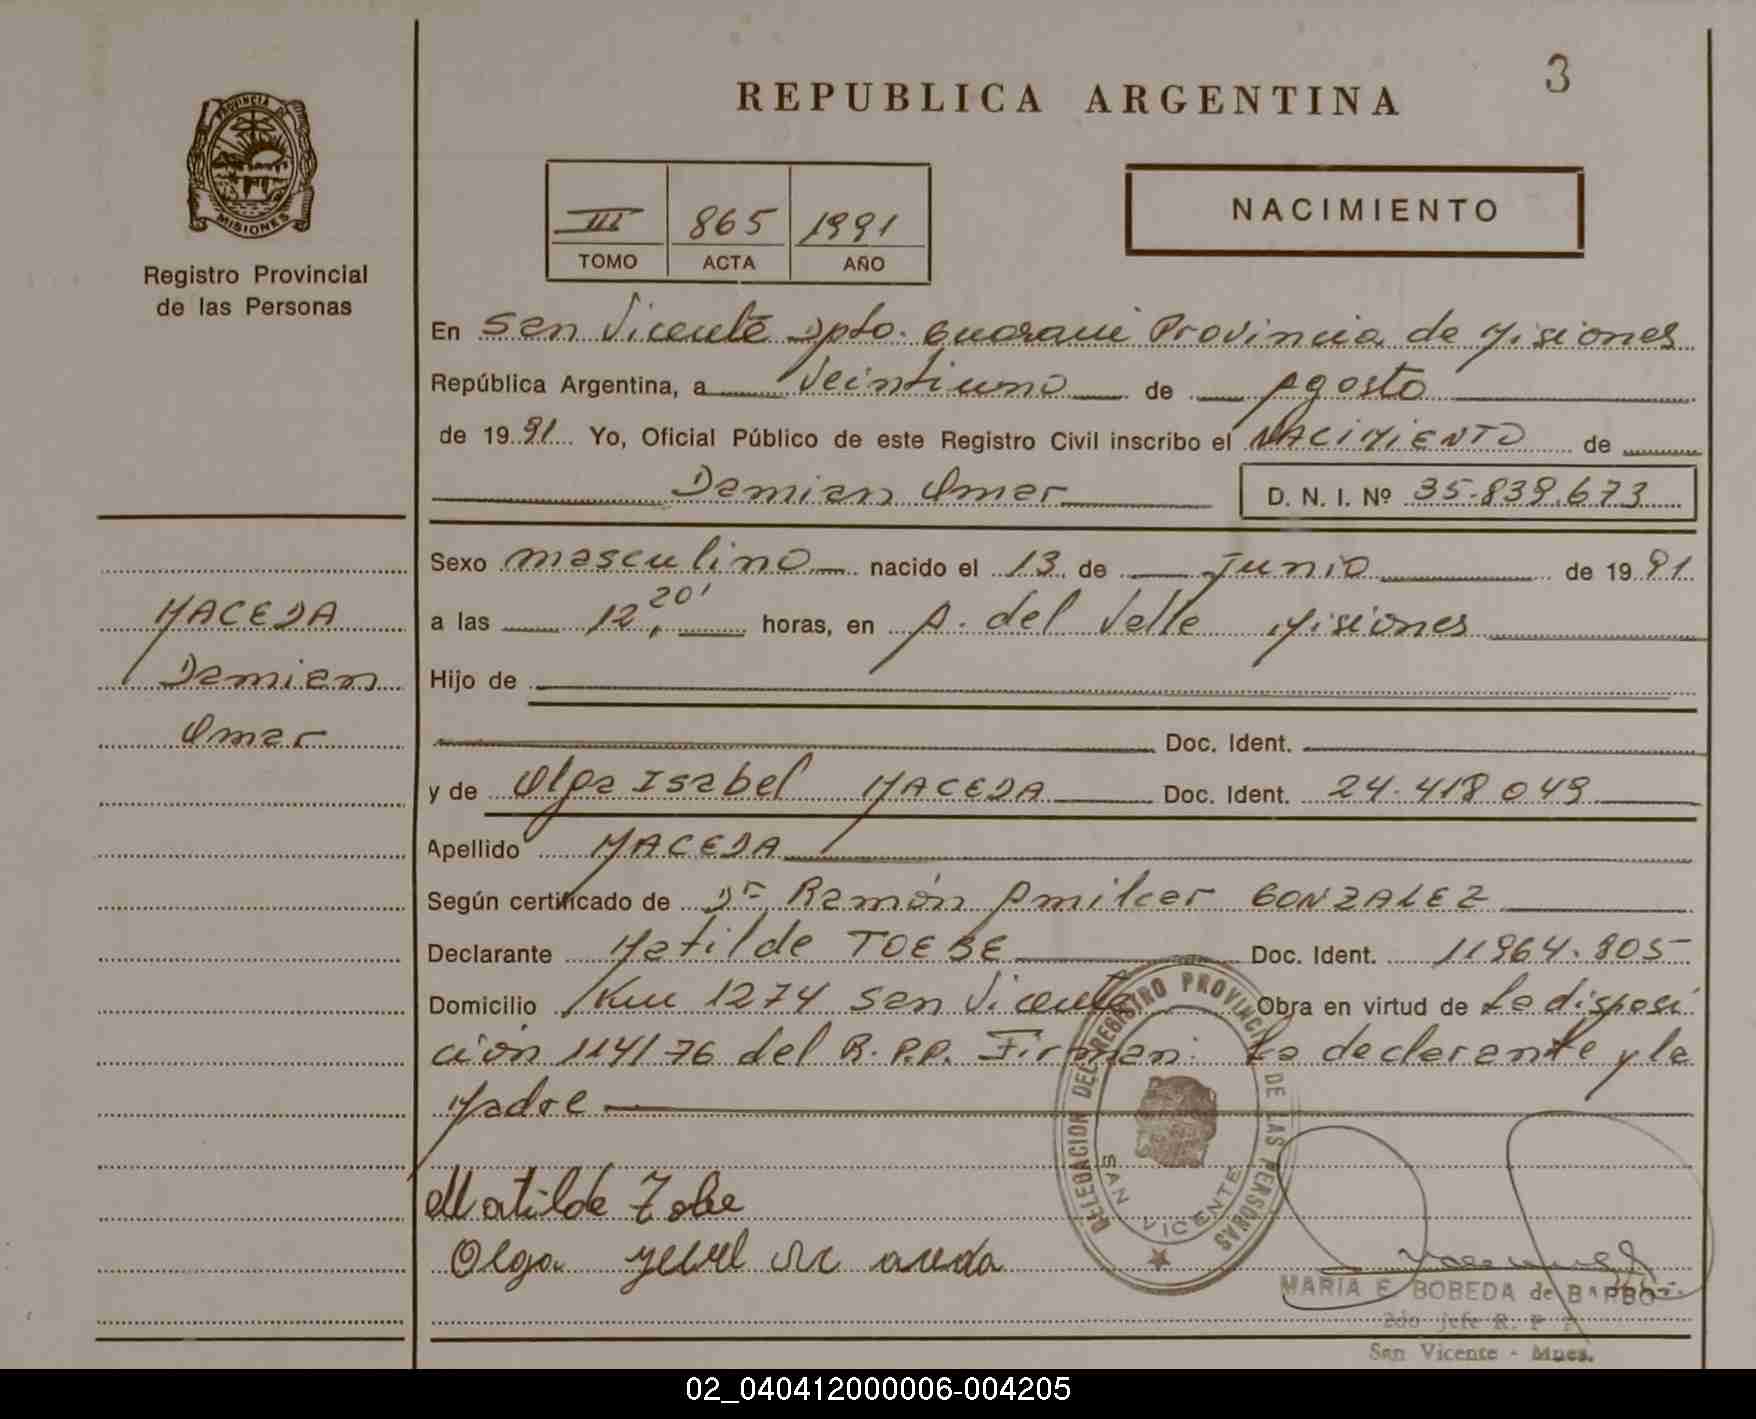 3
REPUBLICA ARGENTINA
PROVINCIA DE
MISIONES
Registro Provincial
de las Personas
III 865 1991
TOMO ACTA AÑO
NACIMIENTO
En San Vicente Dpto. Guarani Provincia de Misiones
República Argentina, a Veintiuno de Agosto
de 1991 Yo, Oficial Público de este Registro Civil inscribo el NACIMIENTO de
Damian Omar D. N. I. Nº 35.839.673
Sexo masculino nacido el 13 de Junio de 1991
a las 12,20' horas, en A. del Valle Misiones
Hijo de
Doc. Ident.
y de Olga Isabel MACEDA Doc. Ident. 24.418049
Apellido MACEDA
Según certificado de Dr Ramón Amilcar GONZALEZ
Declarante Matilde TOEBE Doc. Ident. 11964.805
Domicilio Km 1274 San Vicente Obra en virtud de La disposi
ción 114/76 del R.P.P. Firman: La declarante y la
Madre
MACEDA
Damian
Omar
Matilde Tobe
Olga
DELEGACION DEL REGISTRO PROVINCIAL DE LAS PERSONAS
SAN VICENTE
MARIA E. BOBEDA de
2do Jefe R. P.
San Vicente - Mnes.
02_040412000006-004205